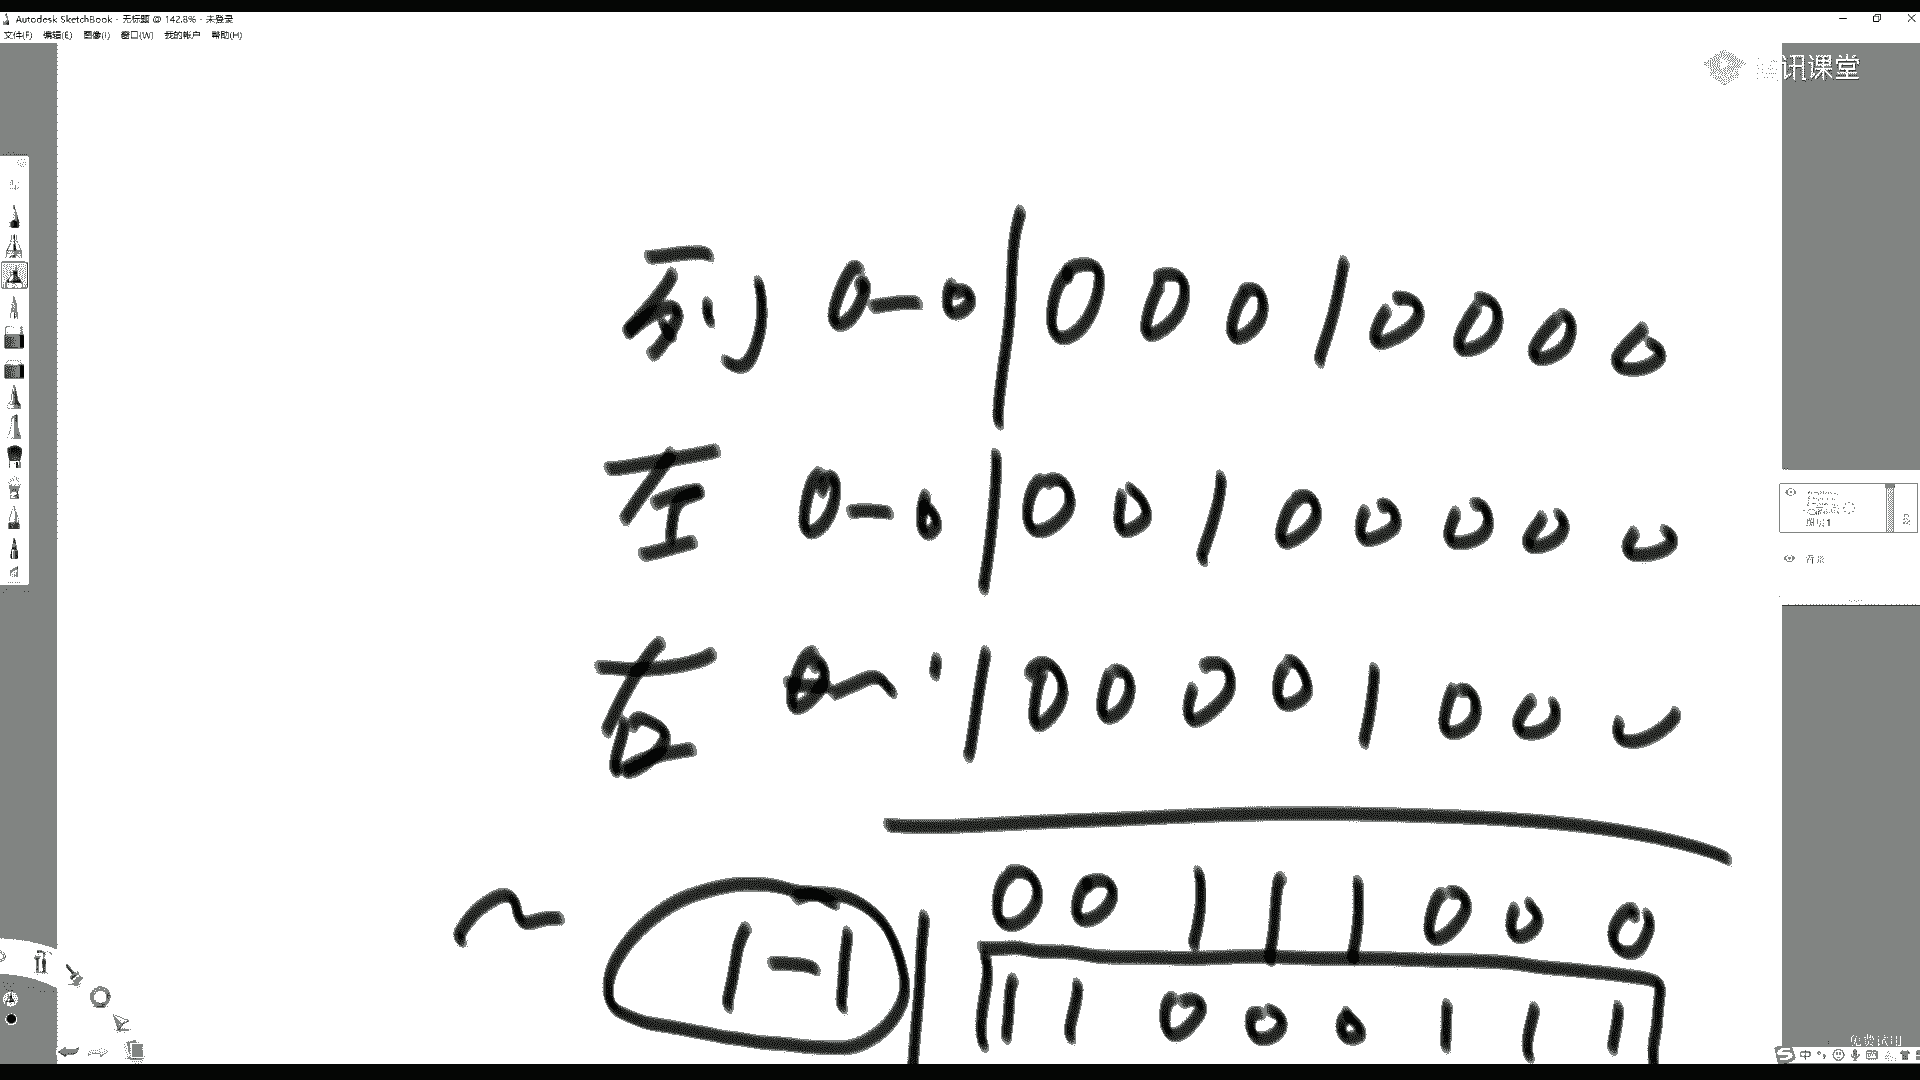 Autodesk SketchBook - 无标题 @ 142.8% - 未登录
文件(F) 编辑(E) 图像(I) 窗口(W) 我的帐户 帮助(H)
讯课堂
列 0-0|00010000
左 0-0|00100000
图层1
背景
右 0~ |00001000
00111000
~ 1-1|11000111
免费试用
中